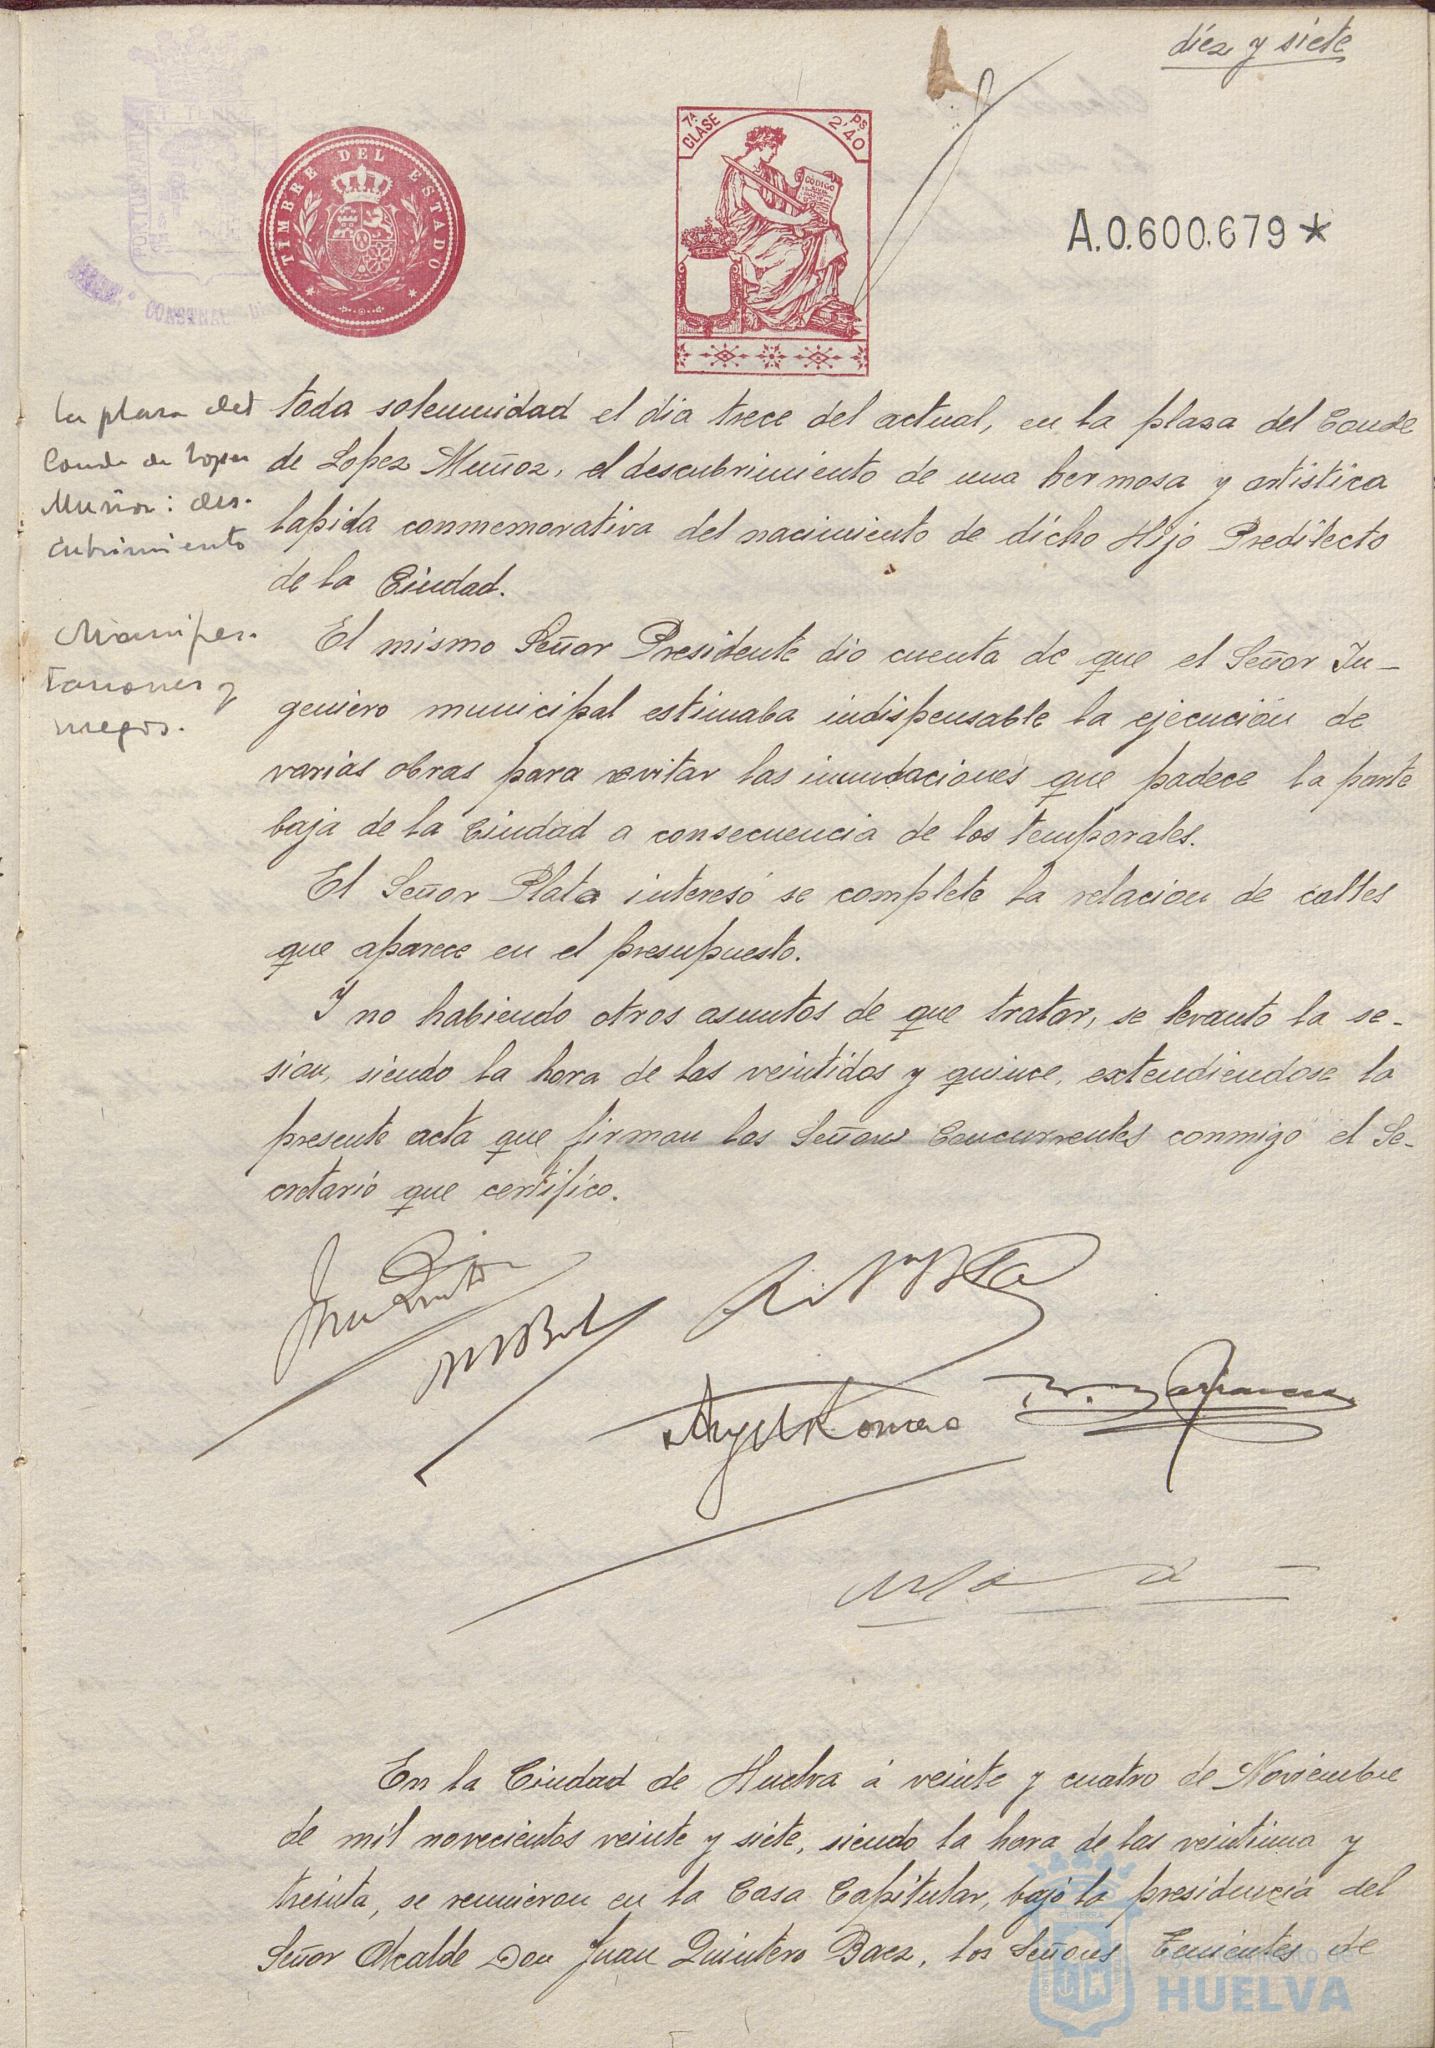 diez y siete
TIMBRE DEL ESTADO
7ª CLASE
Ps 2'40
CODIGO
A.0.600.679*
PORTUS MARIS ET TERRÆ
CONSTNAL
la plaza del
Conde de Lopez
Muñoz: des-
cubrimiento
toda solemnidad el dia trece del actual, en la plaza del Conde
de Lopez Muñoz, el descubrimiento de una hermosa y artistica
lapida conmemorativa del nacimiento de dicho Hijo Predilecto
de la Ciudad.
Manifes-
taciones y
ruegos.
El mismo Señor Presidente dio cuenta de que el Señor In-
geniero municipal estimaba indispensable la ejecución de
varias obras para evitar las inundaciones que padece la parte
baja de la Ciudad a consecuencia de los temporales.
El Señor Plata interesó se complete la relacion de calles
que aparece en el presupuesto.
Y no habiendo otros asuntos de que tratar, se levanto la se-
sion, siendo la hora de las veintidos y quince, extendiendose la
presente acta que firman los Señores Concurrentes conmigo el Se-
cretario que certifico.
Angel Romero
En la Ciudad de Huelva á veinte y cuatro de Noviembre
de mil novecientos veinte y siete, siendo la hora de las veintiuna y
treinta, se reunieron en la Casa Capitular, bajo la presidencia del
Señor Alcalde Don Juan Quintero Baez, los Señores Tenientes de
Ayuntamiento de
HUELVA